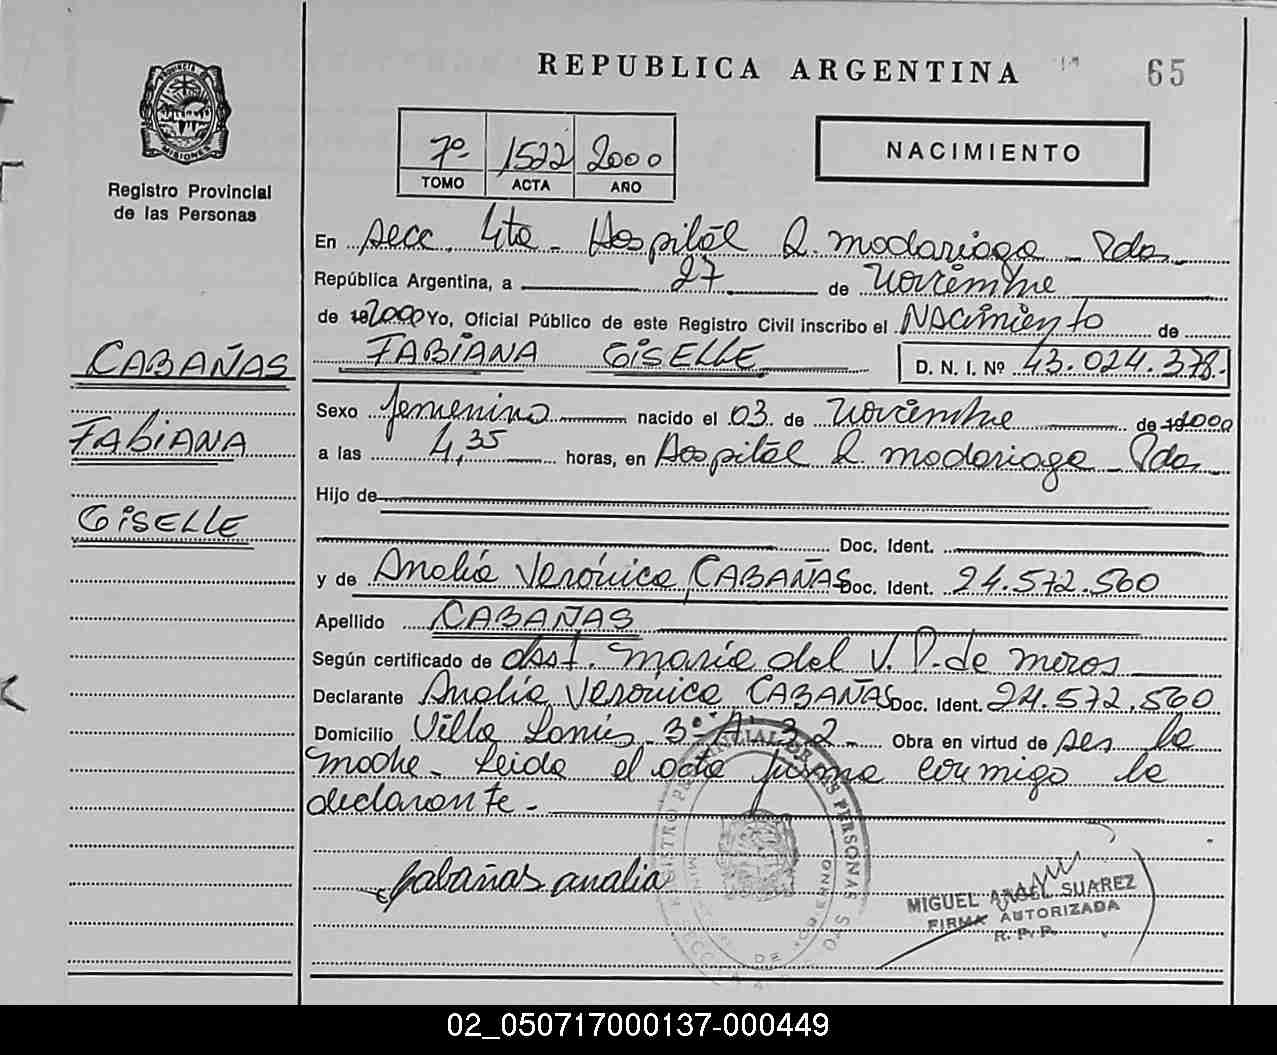 REPUBLICA ARGENTINA 65
PROVINCIA DE MISIONES
Registro Provincial
de las Personas
7º 1522 2000
TOMO ACTA AÑO
NACIMIENTO
En secc. 4ta - Hospital R. Madariaga - Pdas
República Argentina, a 27 de Noviembre
de 2000 Yo, Oficial Público de este Registro Civil inscribo el Nacimiento de
FABIANA GISELLE D. N. I. Nº 43.024.378.-
CABAÑAS
FABIANA
GISELLE
Sexo femenino nacido el 03 de Noviembre de 2000
a las 4,35 horas, en Hospital R. Madariaga - Pdas
Hijo de
Doc. Ident.
y de Analía Verónica CABAÑAS Doc. Ident. 24.572.560
Apellido CABAÑAS
Según certificado de obst. María del V. P. de Meros
Declarante Analía Verónica CABAÑAS Doc. Ident. 24.572.560
Domicilio Villa Lanús 3º "A" 32 - Obra en virtud de ser la
madre - Leida el acta firma conmigo la
declarante -
Cabañas analia
MIGUEL ANGEL SUAREZ
FIRMA AUTORIZADA
R. P. P.
02_050717000137-000449